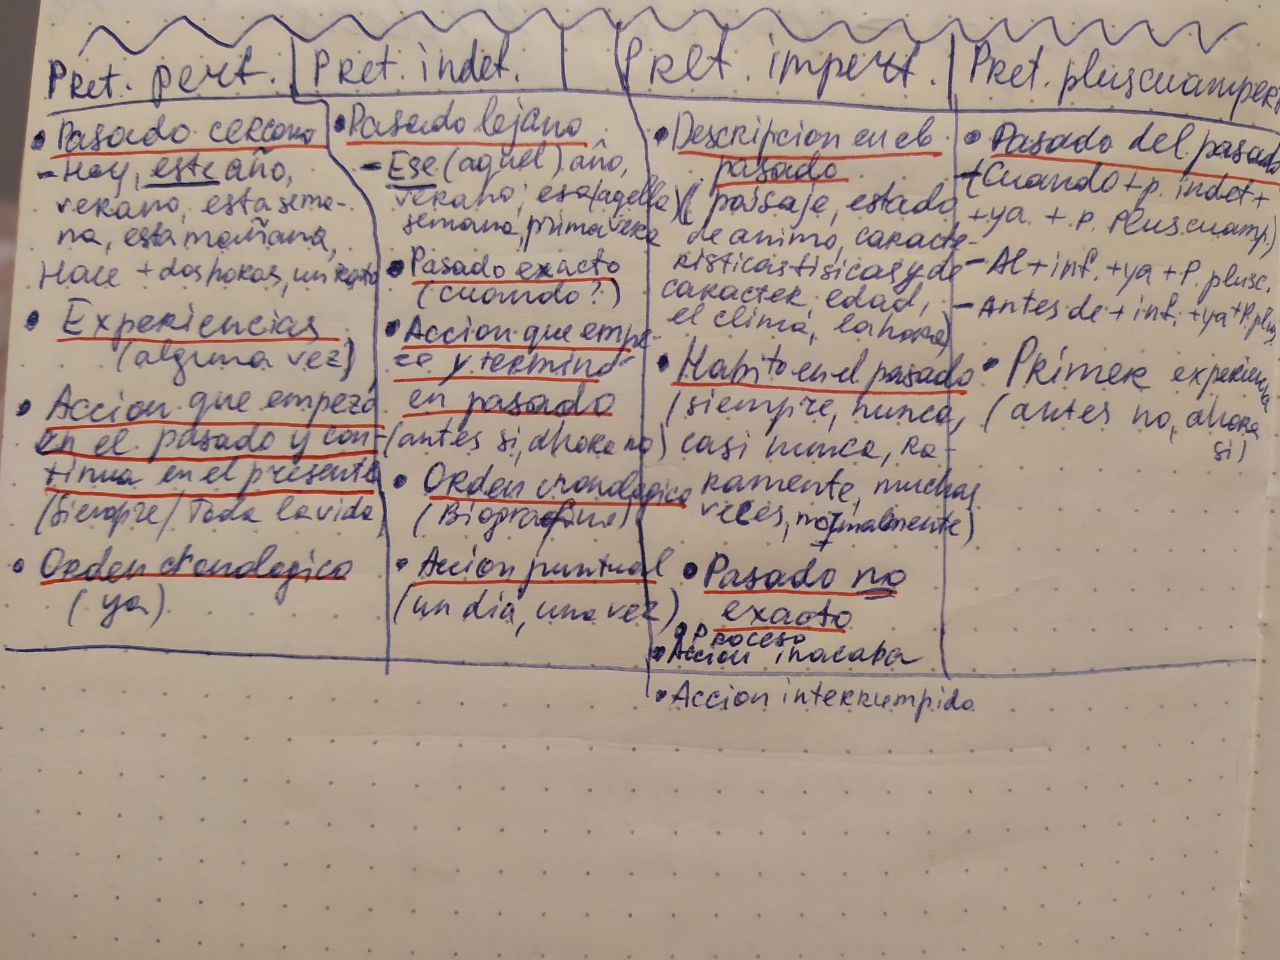 Pret. perf.
Pasado cercano
- Hoy, este año,
verano, esta sema-
na, esta mañana,
Hace + dos horas, un rato
Experiencias
(alguna vez)
Accion que empezó
en el pasado y con-
tinua en el presente
(siempre / Toda la vida)
Orden cronologico
(ya)
Pret. indef.
Pasado lejano
- Ese (aquel) año,
verano; esa (aqella)
semana, primavera
Pasado exacto
(cuando?)
Accion que empe-
zo y terminó
en pasado
(antes si, ahora no)
Orden cronologico
Accion puntual
(un dia, una vez)
Pret. imperf.
Descripcion en el
pasado
(paisaje, estado
de animo, caracte-
risticas fisicas y de
caracter, edad,
el clima, la hora)
Habito en el pasado
(siempre, nunca,
casi nunca, ra-
ramente, muchas
veces, normalmente)
Pasado no
exacto
Proceso
Accion inacaba
Accion interrumpida
Pret. pluscuamperf
Pasado del pasado
- Cuando + p. indef +
+ ya + p. pluscuamp.)
- Al + inf. + ya + P. plusc.
- Antes de + inf. + ya + P. plus.
Primer experiencia
(antes no, ahora
si)